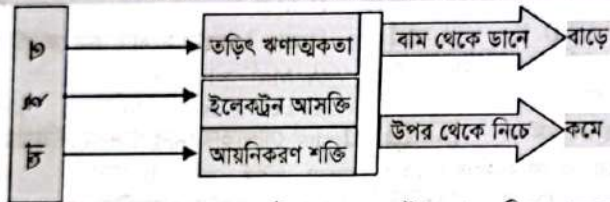 আ ই ত
তড়িৎ ঋণাত্মকতা
ইলেকট্রন আসক্তি
আয়নিকরণ শক্তি
বাম থেকে ডানে
বাড়ে
উপর থেকে নিচে
কমে